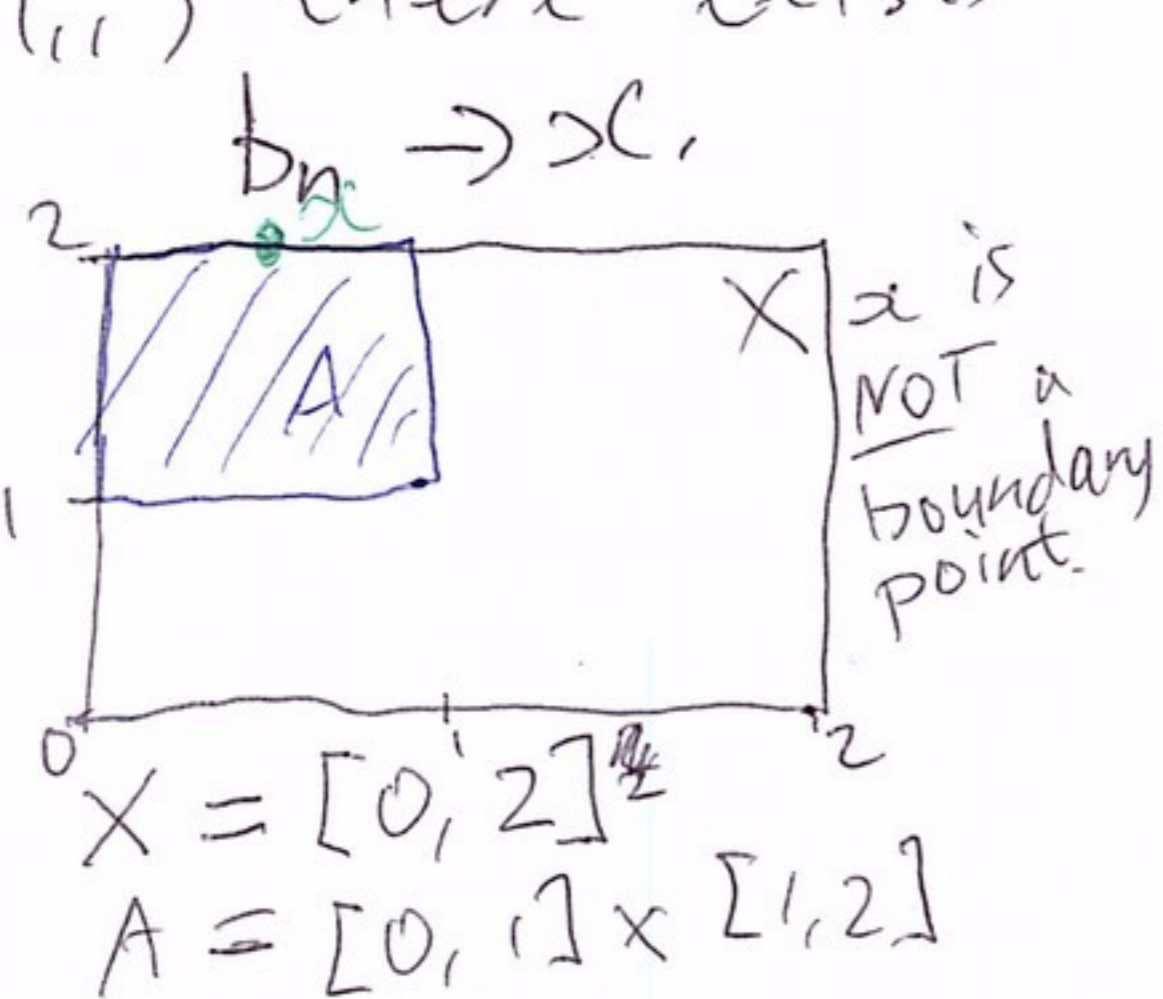 (ii) there exists
bn → x.
x
2
X
x is
NOT a
boundary
point.
A
1
0
1
2
X = [0, 2]²
A = [0, 1] × [1, 2]